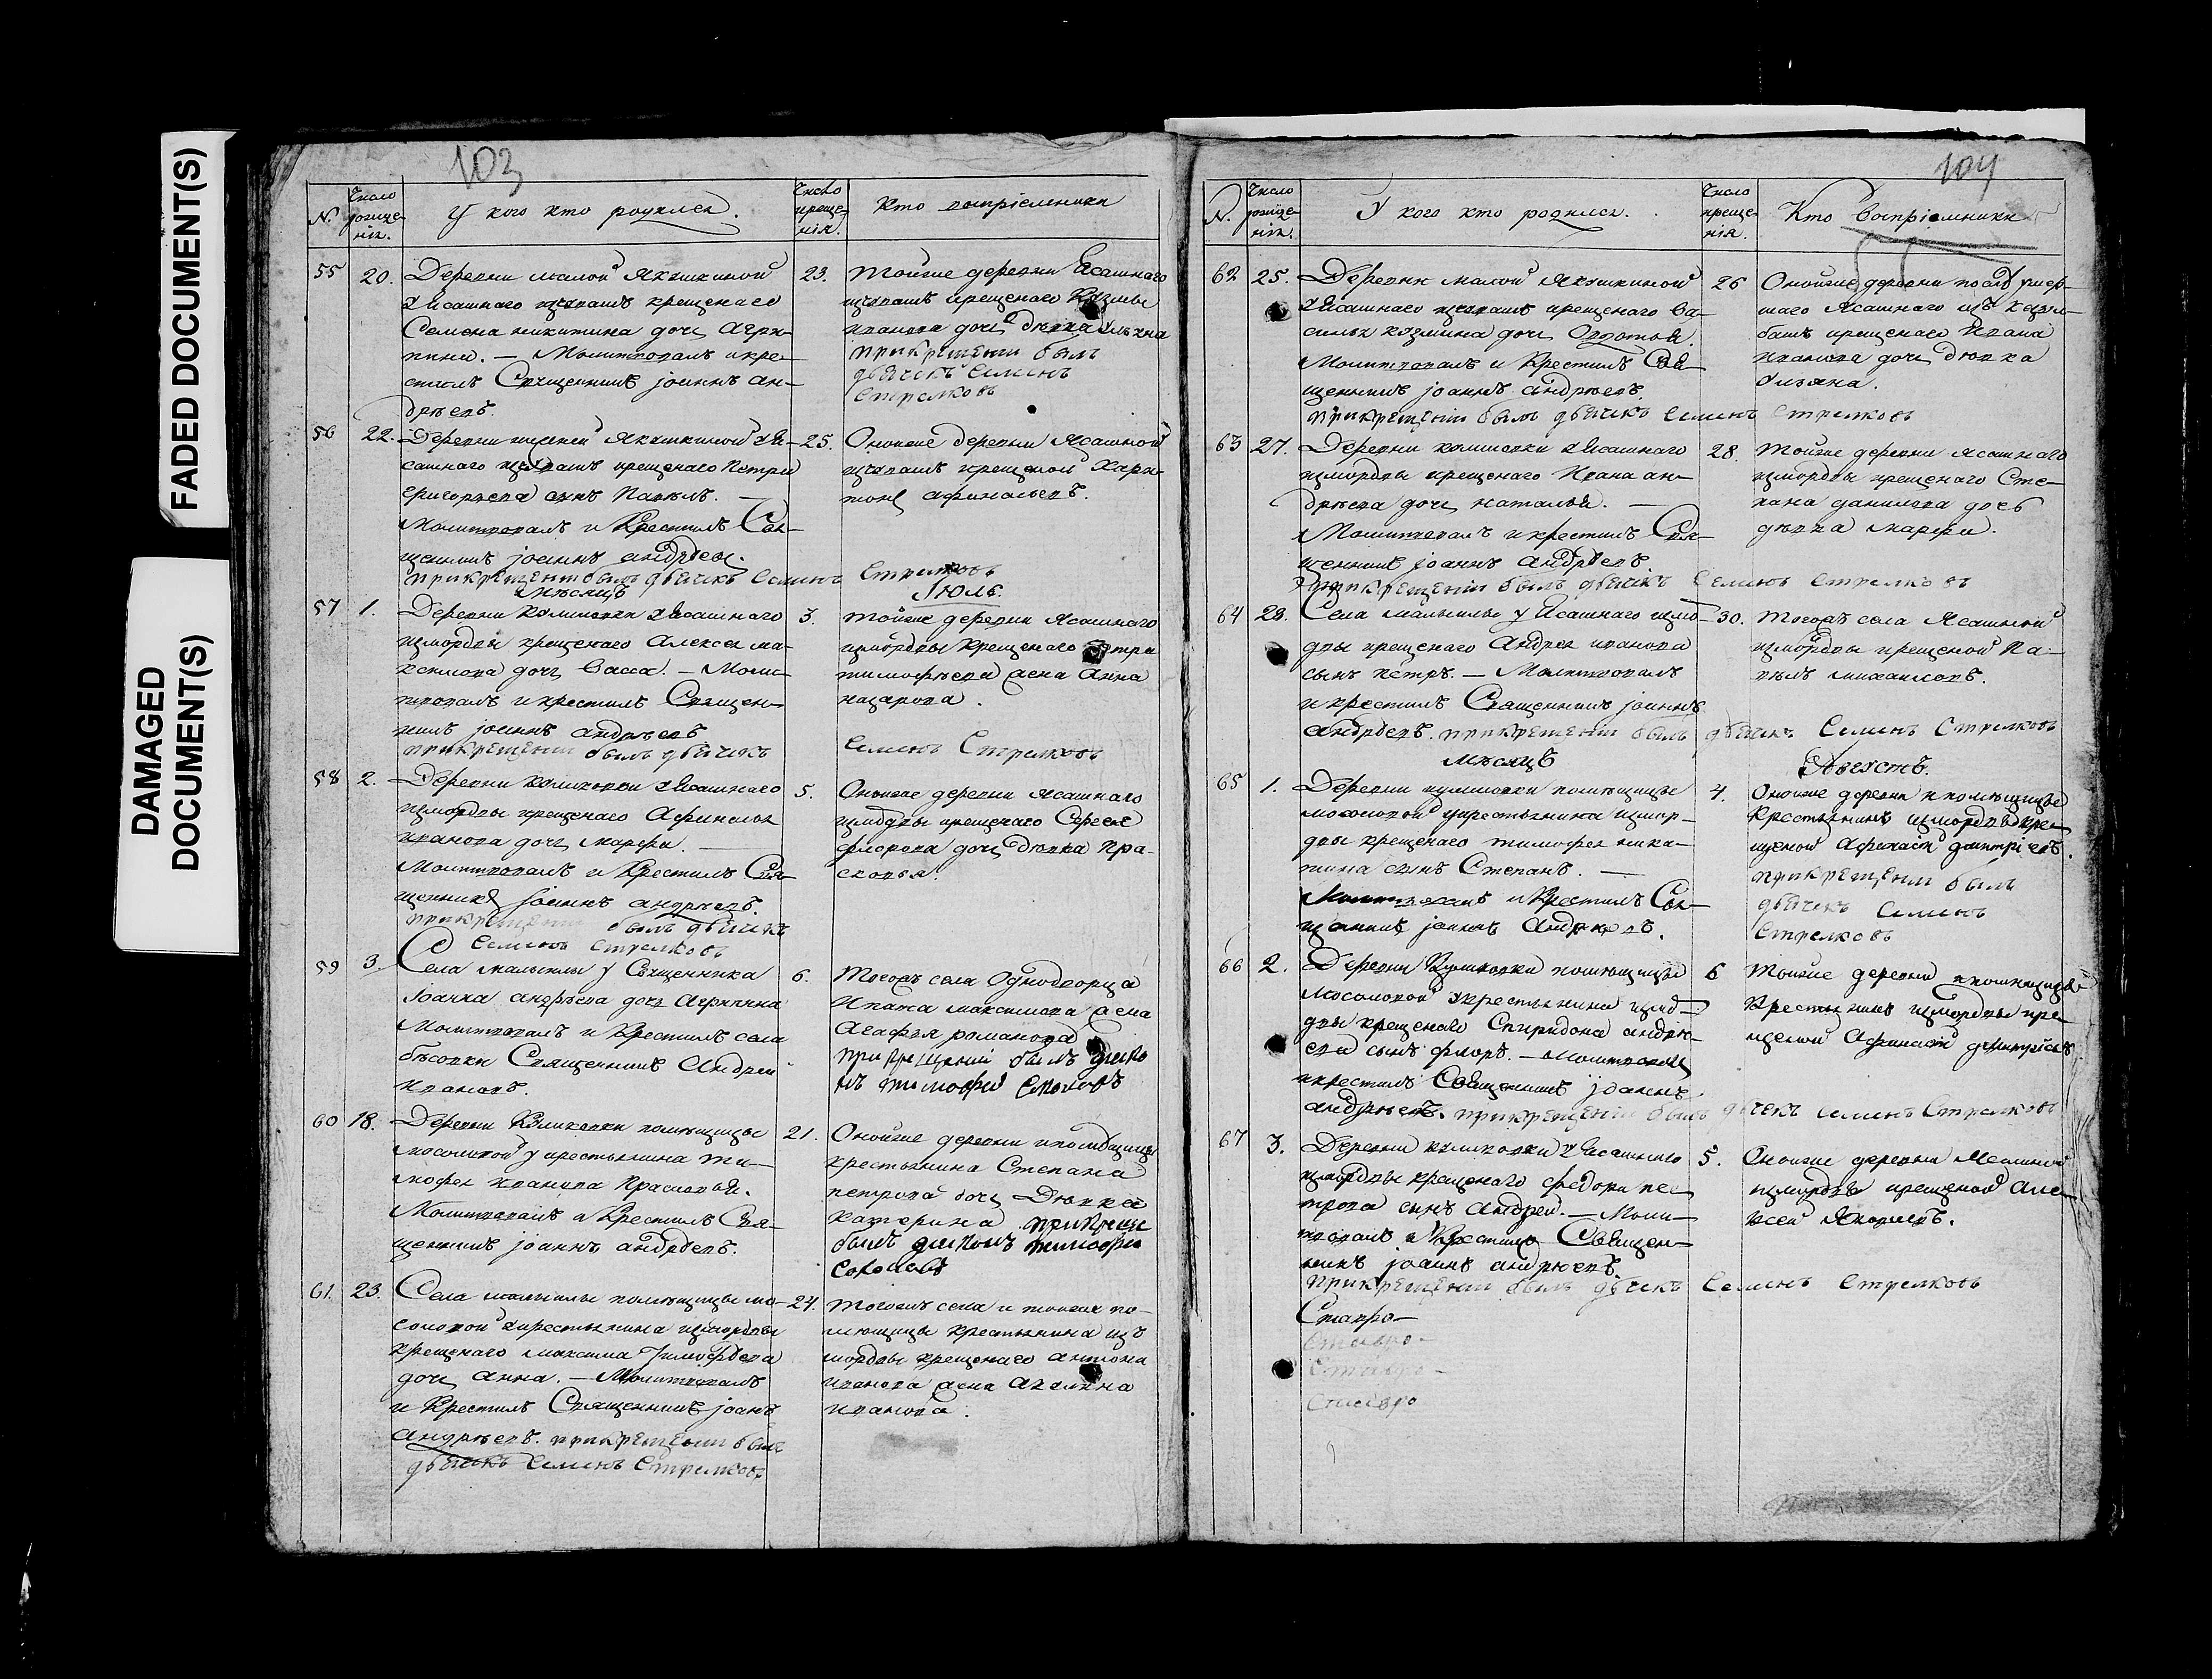 FADED DOCUMENT(S)
DAMAGED
DOCUMENT(S)
103
№.
Число
рожде-
нія.
У кого кто родился.
Число
креще-
нія.
Кто воспріемники
55
20.
Деревни малой Якушкиной
у Ясашнаго изчювашъ крещенаго
Семена никитина дочь Агри-
пина. — Молитвовалъ и кре-
стилъ Священникъ іоаннъ ан-
дрѣевъ.
23.
Тойже деревни Ясашнаго
изчювашъ крещенаго Козмы
иванова дочь дѣвка
прикрещении былъ
дьячекъ Семенъ
Стрелковъ
56
22.
Деревни Якушкиной у Я-
сашнаго изчювашъ крещенаго Петра
григорьева сынъ Павелъ. —
Молитвовалъ и Крестилъ Свя-
щенникъ іоаннъ андрѣевъ.
прикрещении былъ дьячекъ Семенъ Стрелковъ
25.
Оной же деревни Ясашной
изчювашъ крещеной Хари-
тонъ афанасьевъ.
Мѣсяцъ Іюль.
57
1.
Деревни у Ясашнаго
измордвы крещенаго Алексея ма-
ксимова дочь Васса. — Моли-
твовалъ и крестилъ Священ-
никъ іоаннъ андрѣевъ
прикрещении былъ дьячекъ Семенъ Стрелковъ
3.
Тойже деревни Ясашнаго
измордвы Крещенаго Петра
тимофѣева жена Анна
назарова.
58
2.
Деревни у Ясашнаго
измордвы крещенаго Афанасья
иванова дочь марфа. —
Молитвовалъ и Крестилъ Свя-
щенникъ іоаннъ андрѣевъ.
прикрещении былъ дьячекъ
Семенъ Стрелковъ
5.
Оной же деревни Ясашнаго
измордвы крещенаго Сергея
флорова дочь дѣвка Пра-
сковья.
59
3.
Села малыклы у Священника
Іоанна андрѣева дочь
Молитвовалъ и Крестилъ села
бѣсовки Священникъ Андрей
Ивановъ.
6.
Тогожъ села Однодворца
Ипата максимова жена
Агафья романова
при крещении былъ
60
18.
Деревни помѣщицы
мосоловой у крестьянина ти-
мофея иванова
Молитвовалъ и Крестилъ Свя-
щенникъ іоаннъ андрѣевъ.
21.
Оной же деревни и помѣщицы
крестьянина Степана
петрова дочь Дѣвка
катерина прикреще
былъ
61.
23.
Села малыклы помѣщицы мо-
соловой у крестьянина измордвы
крещенаго максима тимофѣева
дочь Анна. — Молитвовалъ
и Крестилъ Священникъ іоаннъ
андрѣевъ. прикрещении былъ
дьячекъ Семенъ Стрелковъ
24.
Тогожъ села и тоеже по-
мѣщицы крестьянина изъ
мордвы крещенаго антона
иванова жена акулина
иванова.
104
№.
Число
рожде-
нія.
У кого кто родился.
Число
креще-
нія.
Кто Воспріемники
62
25.
Деревни малой Якушкиной
у Ясашнаго изчювашъ крещенаго Ва-
силья козмина дочь
Молитвовалъ и Крестилъ Свя-
щенникъ іоаннъ андрѣевъ.
прикрещении былъ дьячекъ Семенъ Стрелковъ
26
Оной же деревни послѣ умер-
шаго Ясашнаго изъ
крещенаго Ивана
иванова дочь дѣвка
63
27.
Деревни у Ясашнаго
измордвы крещенаго Ивана ан-
дрѣева дочь наталья. —
Молитвовалъ и крестилъ Свя-
щенникъ іоаннъ Андрѣевъ.
прикрещении былъ дьячекъ Семенъ Стрелковъ
28.
Тойже деревни Ясашнаго
измордвы крещенаго Сте-
пана данилова дочь
дѣвка марфа.
64
Села малыклы у Ясашнаго измо-
рдвы крещенаго Андрея иванова
сынъ Петръ. — Молитвовалъ
и крестилъ Священникъ іоаннъ
андрѣевъ. прикрещении былъ дьячекъ Семенъ Стрелковъ
30.
Тогожъ села Ясашной
измордвы крещеной Па-
велъ михайловъ.
Мѣсяцъ Августъ.
65
1.
Деревни помѣщицы
мосоловой у крестьянина измор-
двы крещенаго тимофея ники-
тина сынъ Степанъ. —
Молитвовалъ и Крестилъ Свя-
щенникъ іоаннъ Андрѣевъ.
4.
Оной же деревни и помѣщицы
Крестьянинъ измордвы кре-
щеной Афанасій дмитріевъ.
прикрещении былъ
дьячекъ Семенъ
Стрелковъ
66
2.
Деревни помѣщицы
Мосоловой у крестьянина измо-
рдвы крещенаго Спиридона андрѣ-
ева сынъ флоръ. — Молитвовалъ
и крестилъ Священникъ іоаннъ
андрѣевъ. прикрещении былъ дьячекъ Семенъ Стрелковъ
6
Тойже деревни и помѣщицы
Крестьянинъ измордвы кре-
щеной Афанасій дмитріевъ
67
3.
Деревни у Ясашнаго
измордвы крещенаго федора пе-
трова сынъ Андрей. — Моли-
твовалъ и Крестилъ Священ-
никъ іоаннъ андрѣевъ.
прикрещении былъ дьячекъ Семенъ Стрелковъ
5.
Оной же деревни Ясашной
измордвы крещеной Але-
ксей Яковлевъ.
Ставро-
Ставро-
Ставро-
Ставро